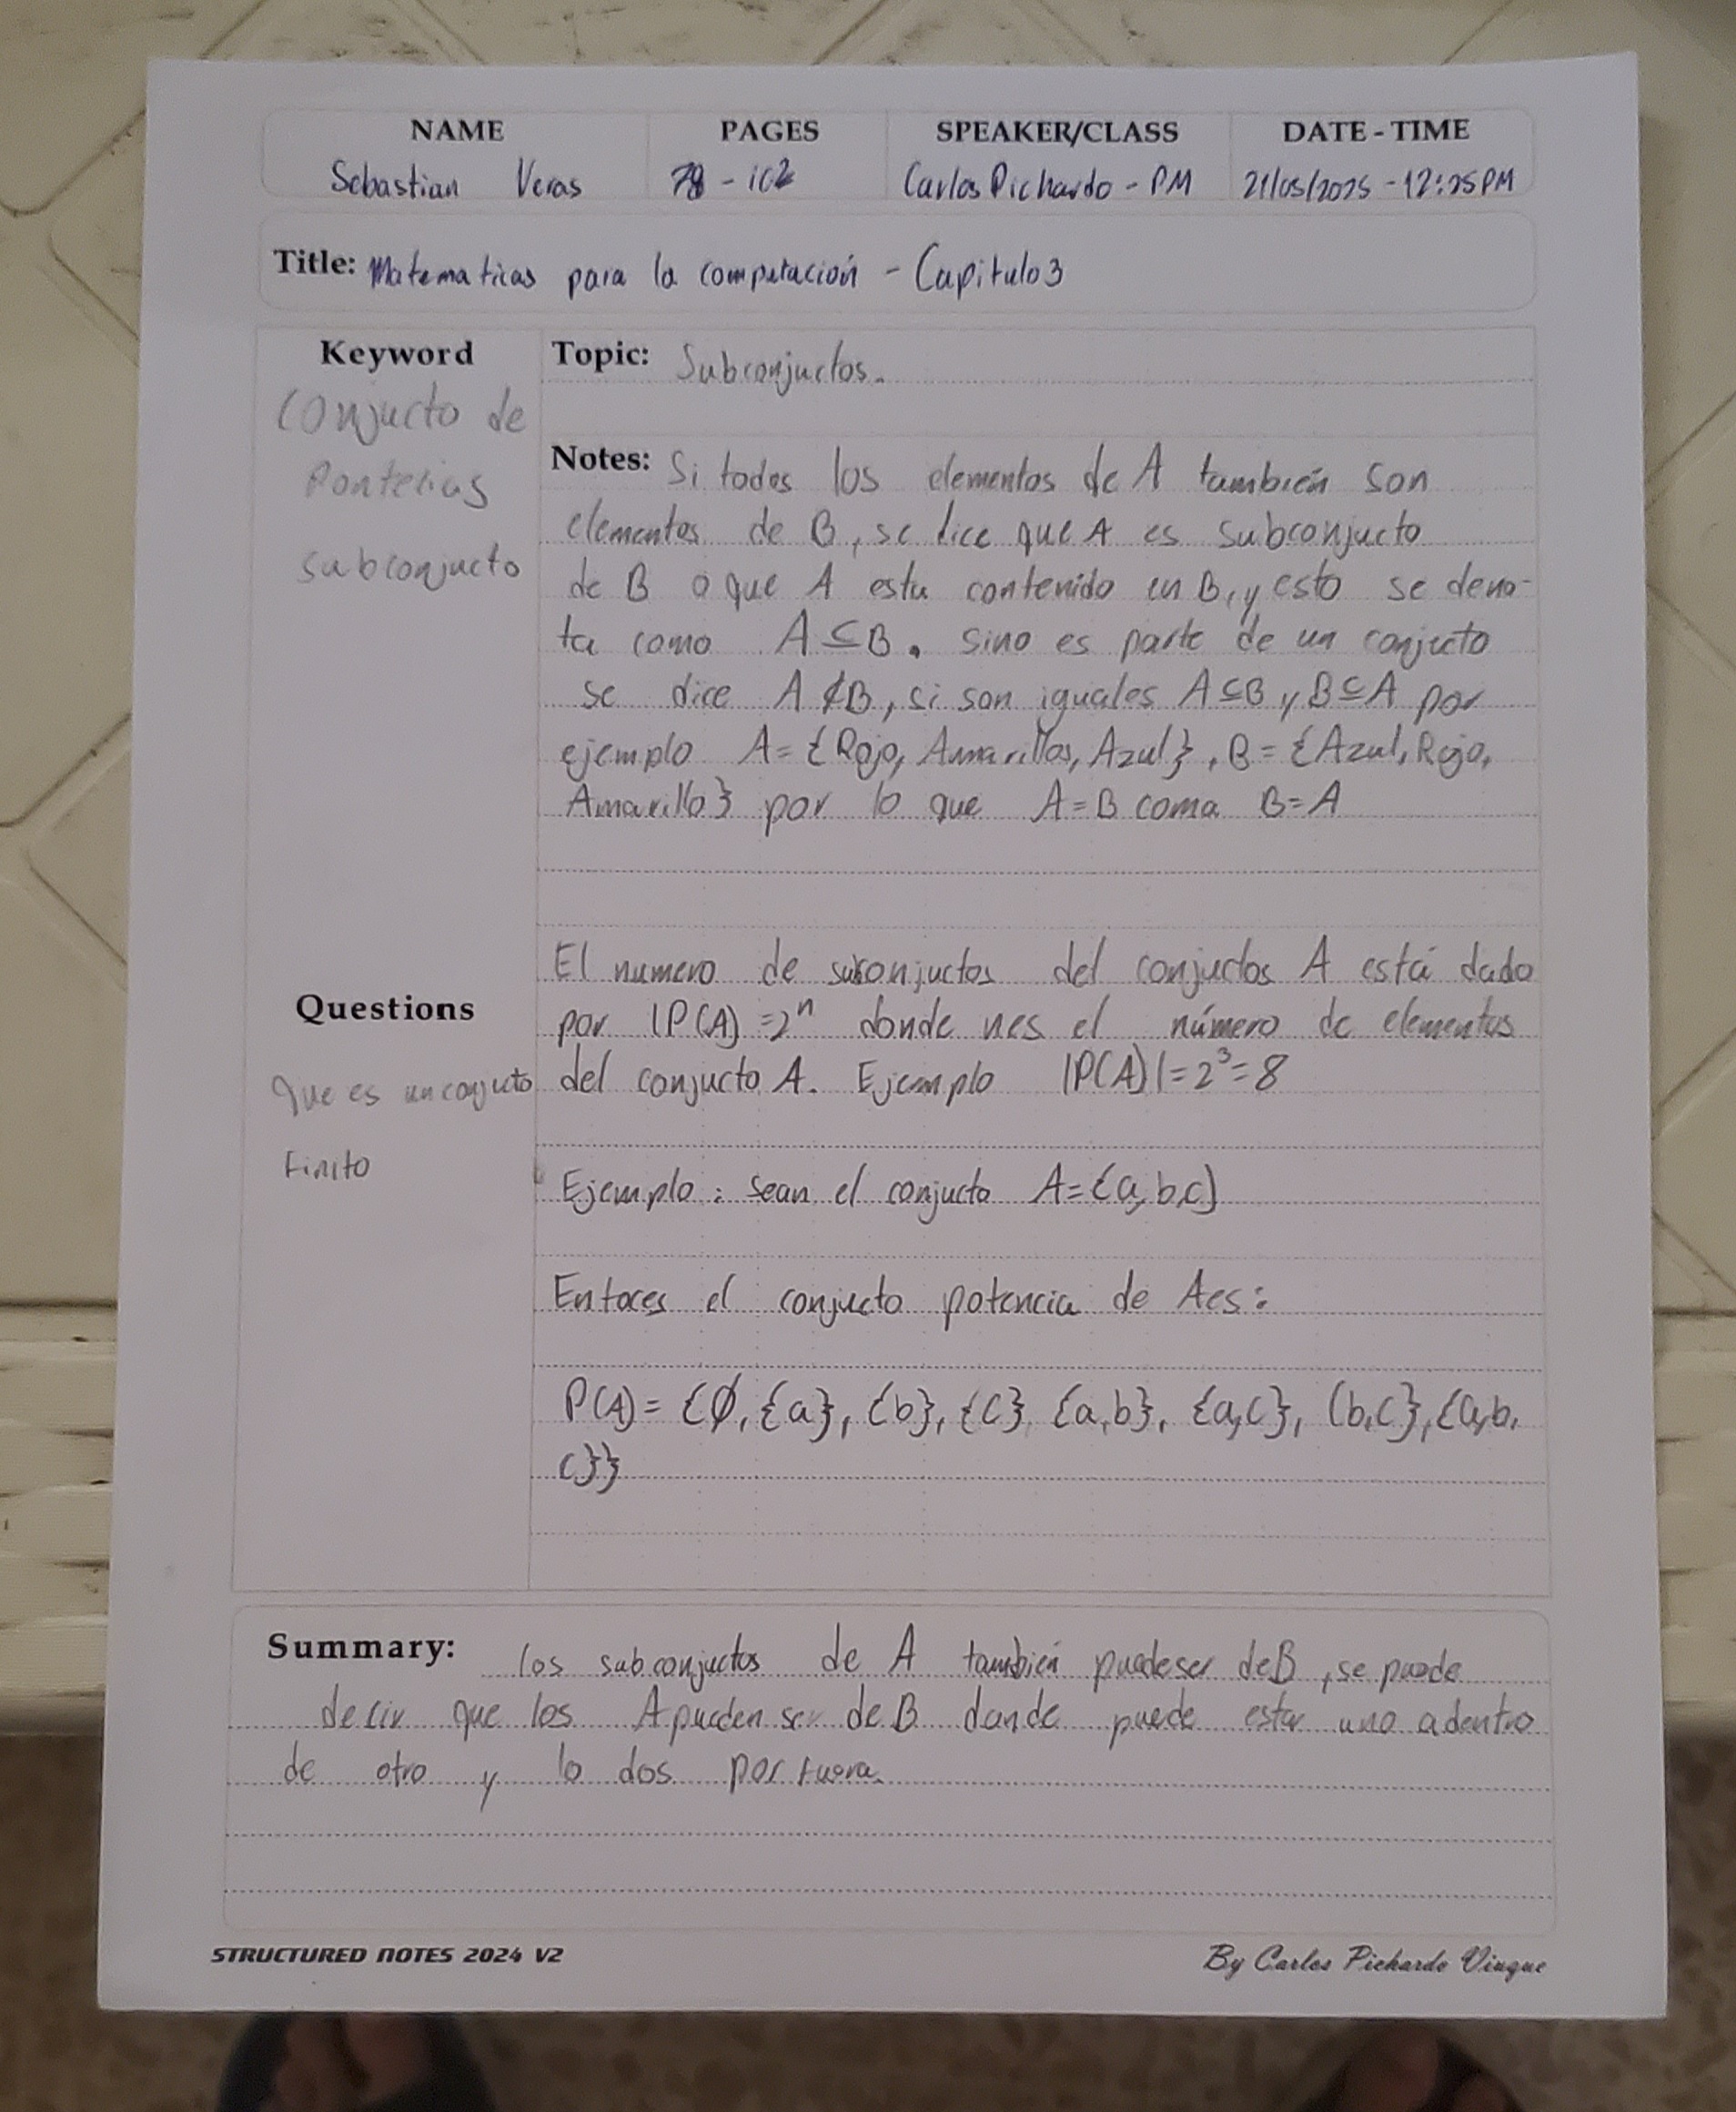 NAME PAGES SPEAKER/CLASS DATE - TIME
Sebastian Veras 78 - 102 Carlos Pichardo - PM 21/05/2025 - 12:25PM
Title: Matematicas para la computación - Capitulo 3
Keyword
Conjucto de
Pontecias
subconjucto
Topic: Subconjuctos.
Notes: Si todos los elementos de A también son
elementos de B, se dice que A es subconjucto
de B o que A esta contenido en B, y esto se deno-
ta como A ⊆ B. sino es parte de un conjucto
se dice A ⊄ B, si son iguales A ⊆ B y B ⊆ A por
ejemplo A = {Rojo, Amarillos, Azul}, B = {Azul, Rojo,
Amarillo} por lo que A = B coma B = A
El numero de subconjuctos del conjuctos A está dado
por |P(A) = 2ⁿ donde n es el número de elementos
del conjucto A. Ejemplo |P(A)| = 2³ = 8
Questions
Que es un conjucto
Finito
Ejemplo: sean el conjucto A = {a, b, c}
Entoces el conjucto potencia de A es:
P(A) = {∅, {a}, {b}, {c} {a, b}, {a, c}, (b, c}, {a, b,
c}}
Summary: los subconjuctos de A también puede ser de B, se puede
decir que los A pueden ser de B donde puede estar uno adentro
de otro y lo dos por fuera.
STRUCTURED NOTES 2024 V2
By Carlos Pichardo Viuque